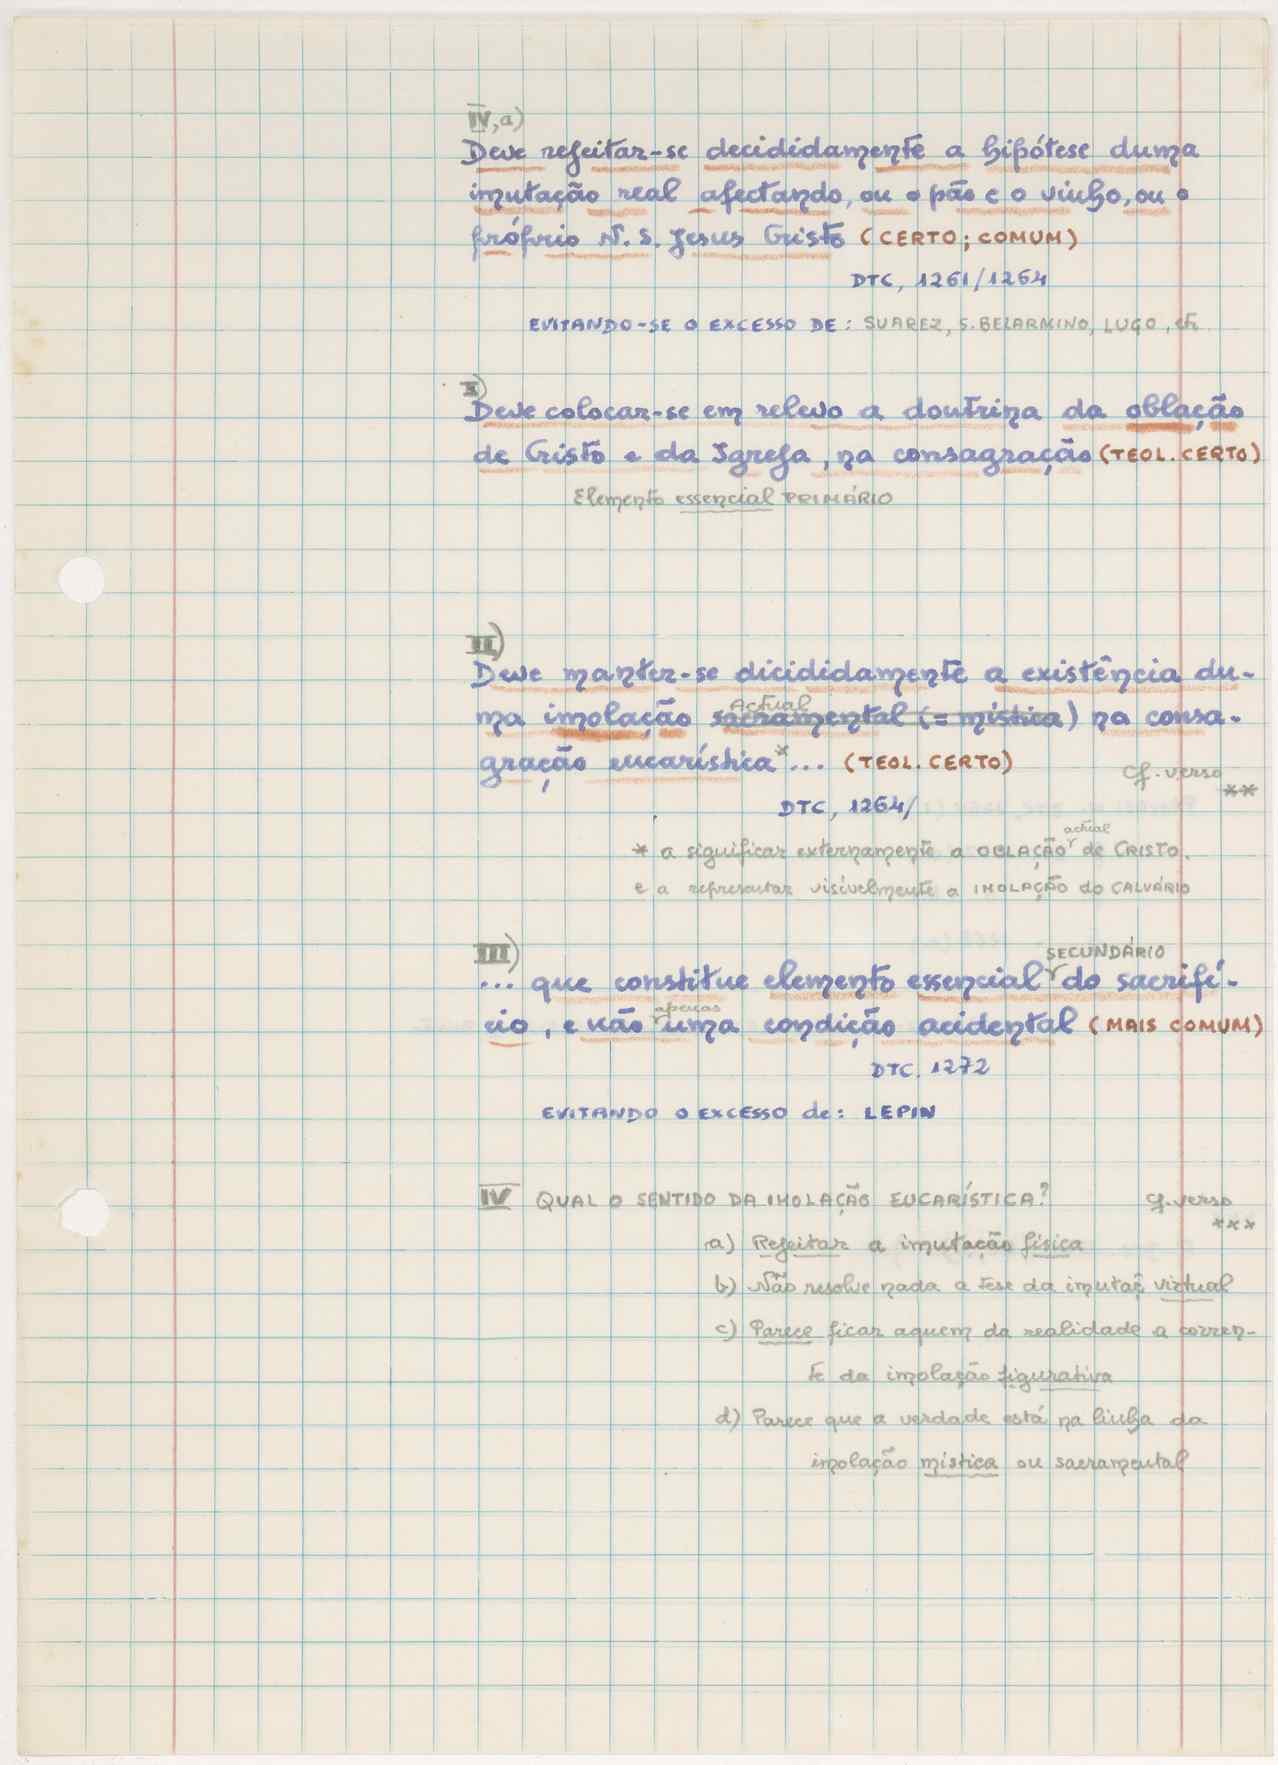 IV,a)
Deve rejeitar-se decididamente a hipótese duma
imutação real afectando, ou o pão e o vinho, ou o
próprio N. S. Jesus Cristo (CERTO; COMUM)
DTC, 1261/1264
EVITANDO-SE O EXCESSO DE: SUAREZ, S. BELARMINO, LUGO, etc
I)
Deve colocar-se em relevo a doutrina da oblação
de Cristo e da Igreja, na consagração (TEOL. CERTO)
Elemento essencial PRIMÁRIO
II)
Deve manter-se dicididamente a existência du-
Actual
ma imolação sacramental (= mística) na consa-
gração eucarística*... (TEOL. CERTO)
cf. verso
**
DTC, 1264/
actual
* a significar externamente a OBLAÇÃO de CRISTO,
e a representar visívelmente a IMOLAÇÃO do CALVÁRIO
III)
SECUNDÁRIO
... que constitue elemento essencial do sacrifí-
apenas
cio, e não uma condição acidental (MAIS COMUM)
DTC. 1272
EVITANDO O EXCESSO de: LEPIN
IV QUAL O SENTIDO DA IMOLAÇÃO EUCARÍSTICA? cf. verso
***
a) Rejeitar a imutação física
b) Não resolve nada a tese da imutaç̃ virtual
c) Parece ficar aquem da realidade a corren-
te da imolação figurativa
d) Parece que a verdade está na linha da
imolação mística ou sacramental